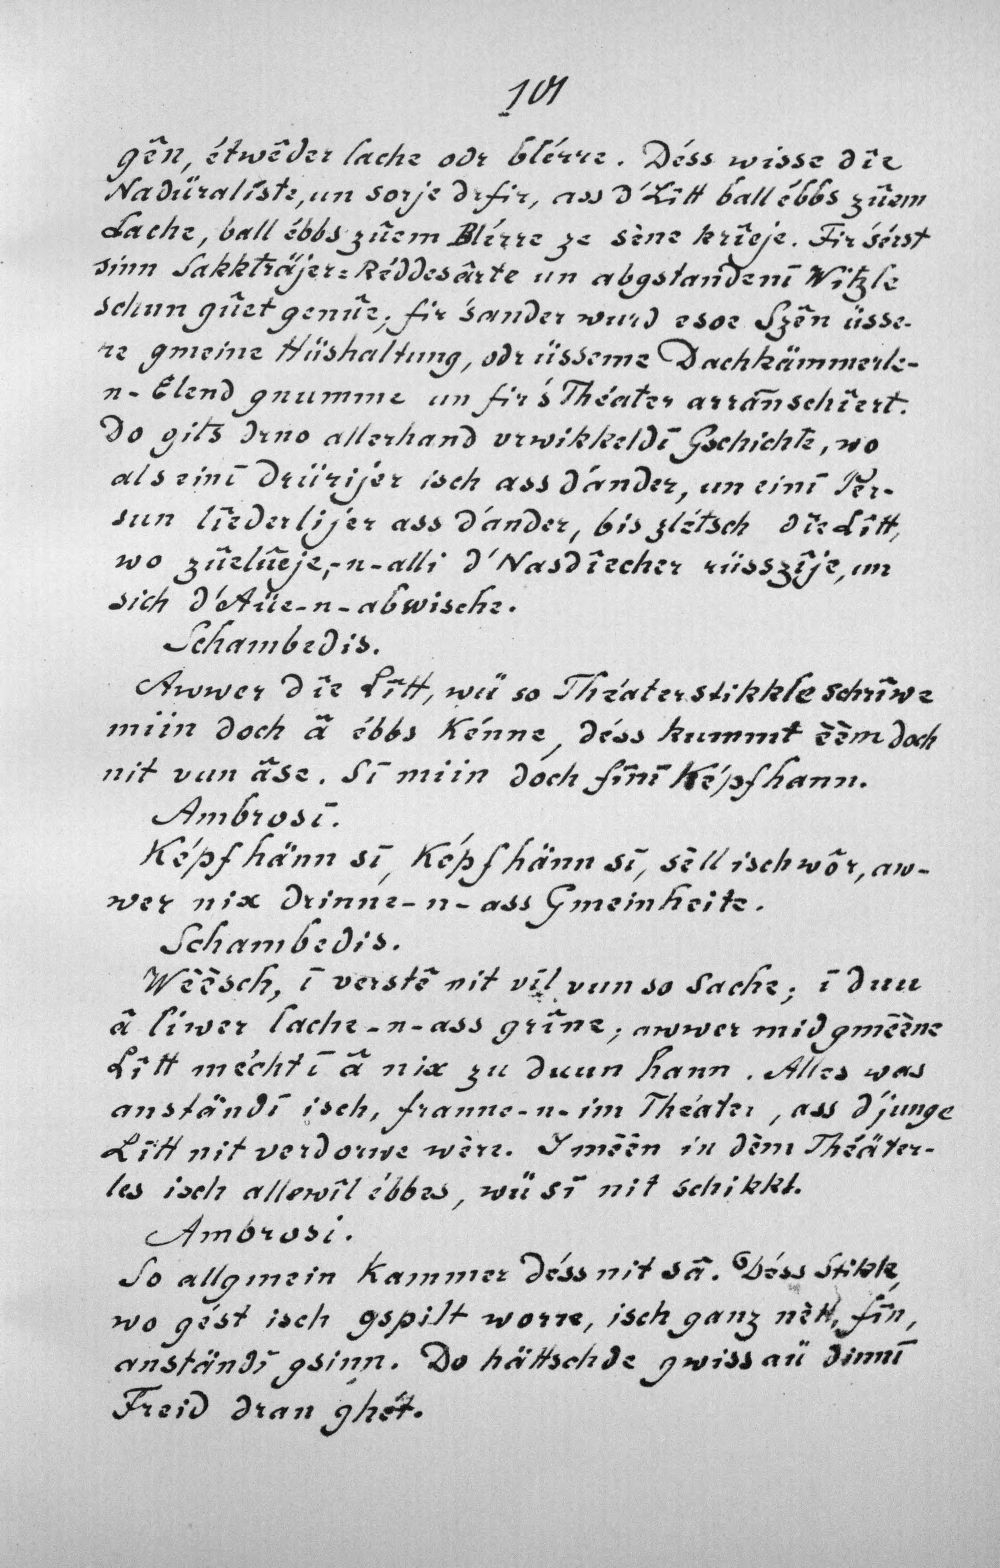 101
gên, étwêder lache odr blérre. Déss wisse dîe
Nadüralíste, un sorje drfir, ass d'Lîtt ball ébbs zûem
Lache, ball ébbs zûem Blérre ze sène krîeje. Fir 'sérst
sinn Sakkträjer=Réddesârte un abgstandenī Witzle
schun gûet genûe; fir 'sander wurd esoe Szên üsse-
re gmeine Hüshaltung, odr üsseme Dachkämmerle-
n-Elend gnumme un fir 's Théater arrānschîert.
Do gits drno allerhand vrwikkeldī Gschichte, wo
als einī drürijer isch ass d'ander, un einī Per-
sun lîederlijer ass d'ander, bis zlétsch dîe Lîtt,
wo zûelûeje,-n-alli d'Nasdîecher rüsszîje, un
sich d'Aüe-n-abwische.
Schambedis.
Awwer dîe Lîtt, wü so Théaterstikkle schrîwe
miin doch ä ébbs kénne, déss kummt èèm doch
nit vun äse. Sī miin doch fīnī Képf hann.
Ambrosī.
Képf hänn sī, Képf hänn sī, sèll isch wôr, aw-
wer nix drinne-n-ass Gmeinheite.
Schambedis.
Wèèsch, ī verstê nit vīl vun so Sache; ī duu
â liwer lache-n-ass grîne; awwer mid gmèène
Lîtt mécht ī â nix zu duun hann. Alles was
anständī isch, franne-n-im Théater, ass d'junge
Lîtt nit verdorwe wère. I mèèn in dèm Théäter-
les isch allewîl ébbes, wü sī nit schikkt.
Ambrosi.
So allgmein kammer déss nit sâ. Déss Stikk,
wo gést isch gspilt worre, isch ganz nètt, fîn,
anständī gsinn. Do hättschde gwiss aü dinnī
Freid dran ghét.